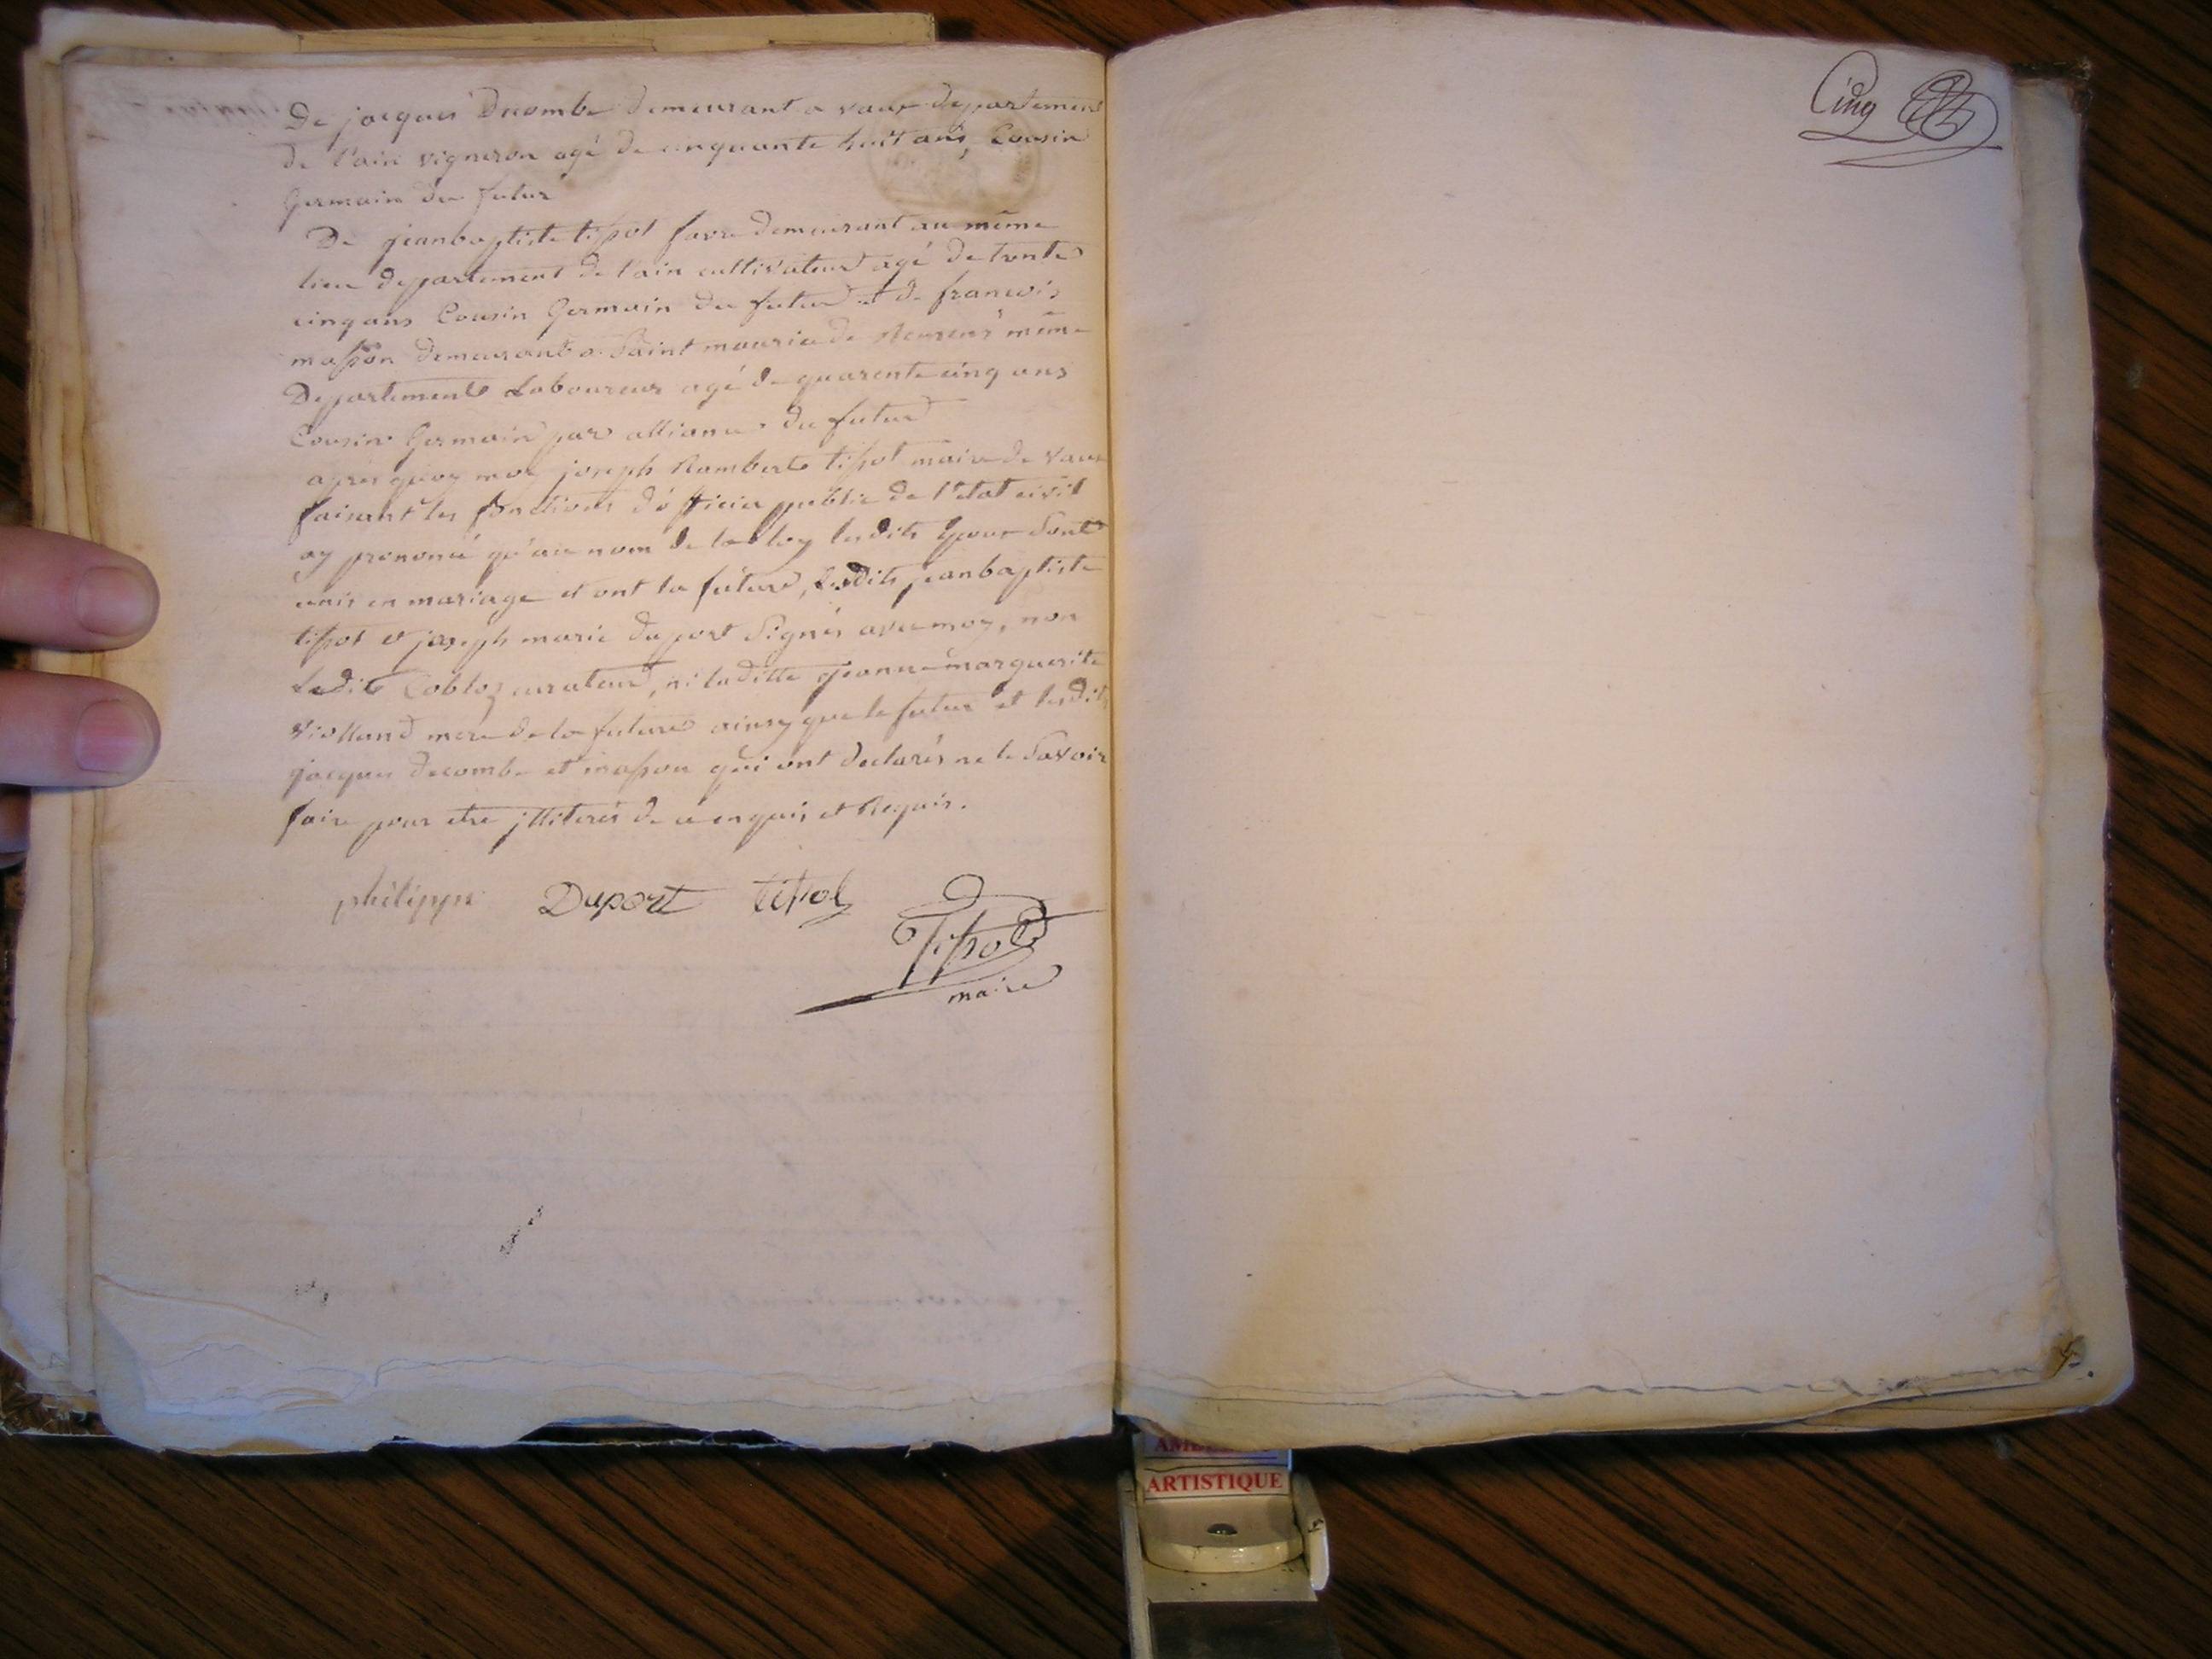 De jacques Decombe demeurant a vaux departement
de l'ain vigneron agé de cinquante huit ans, Cousin
Germain du futur
De jeanbaptiste tissot favre demeurant au même
lieu departement de l'ain cultivateur agé de trente
cinq ans Cousin Germain du futur et de francois
masson demeurant a Saint maurice de même
Departement Laboureur agé de quarente cinq ans
Cousin Germain par alliance du futur
aprés quoy moy joseph Rambert tissot maire de vaux
faisant les fonctions d'officier public de l'etat civil
ay prononcé qu'au nom de la loy lesdits Epoux Sont
unis en mariage et ont la future, lesdits jeanbaptiste
tissot et joseph marie duport Signés avec moy, non
ledit Cobloz curateur, ni laditte jeanne marguerite
violland mere de la future ainsy que le futur et lesdits
jacques decombe et masson qui ont declarés ne le Savoir
faire pour etre jlliterés de ce enquis et Requis.
philippe Duport tissot
Tissot
maire
Cinq
ARTISTIQUE